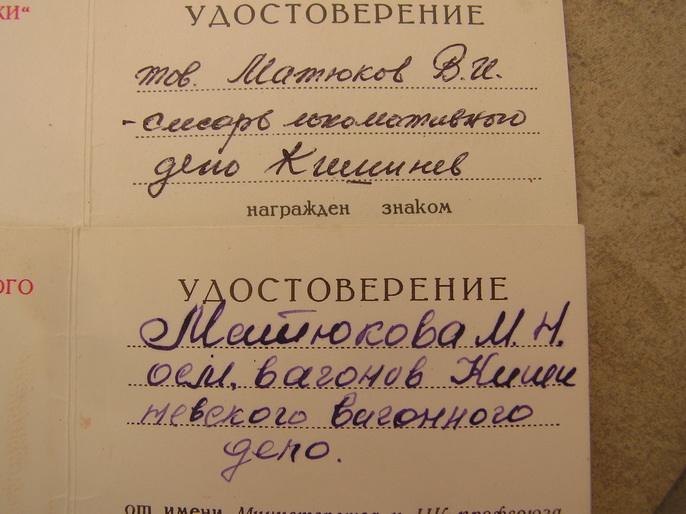 КИ“
УДОСТОВЕРЕНИЕ
тов. Матюков В.И.
-слесарь локомотивного
депо Кишинев
награжден знаком
ОГО
УДОСТОВЕРЕНИЕ
Матюкова М.Н.
осм. вагонов Киши
невского вагонного
депо.
от имени Министерства и ЦК профсоюза